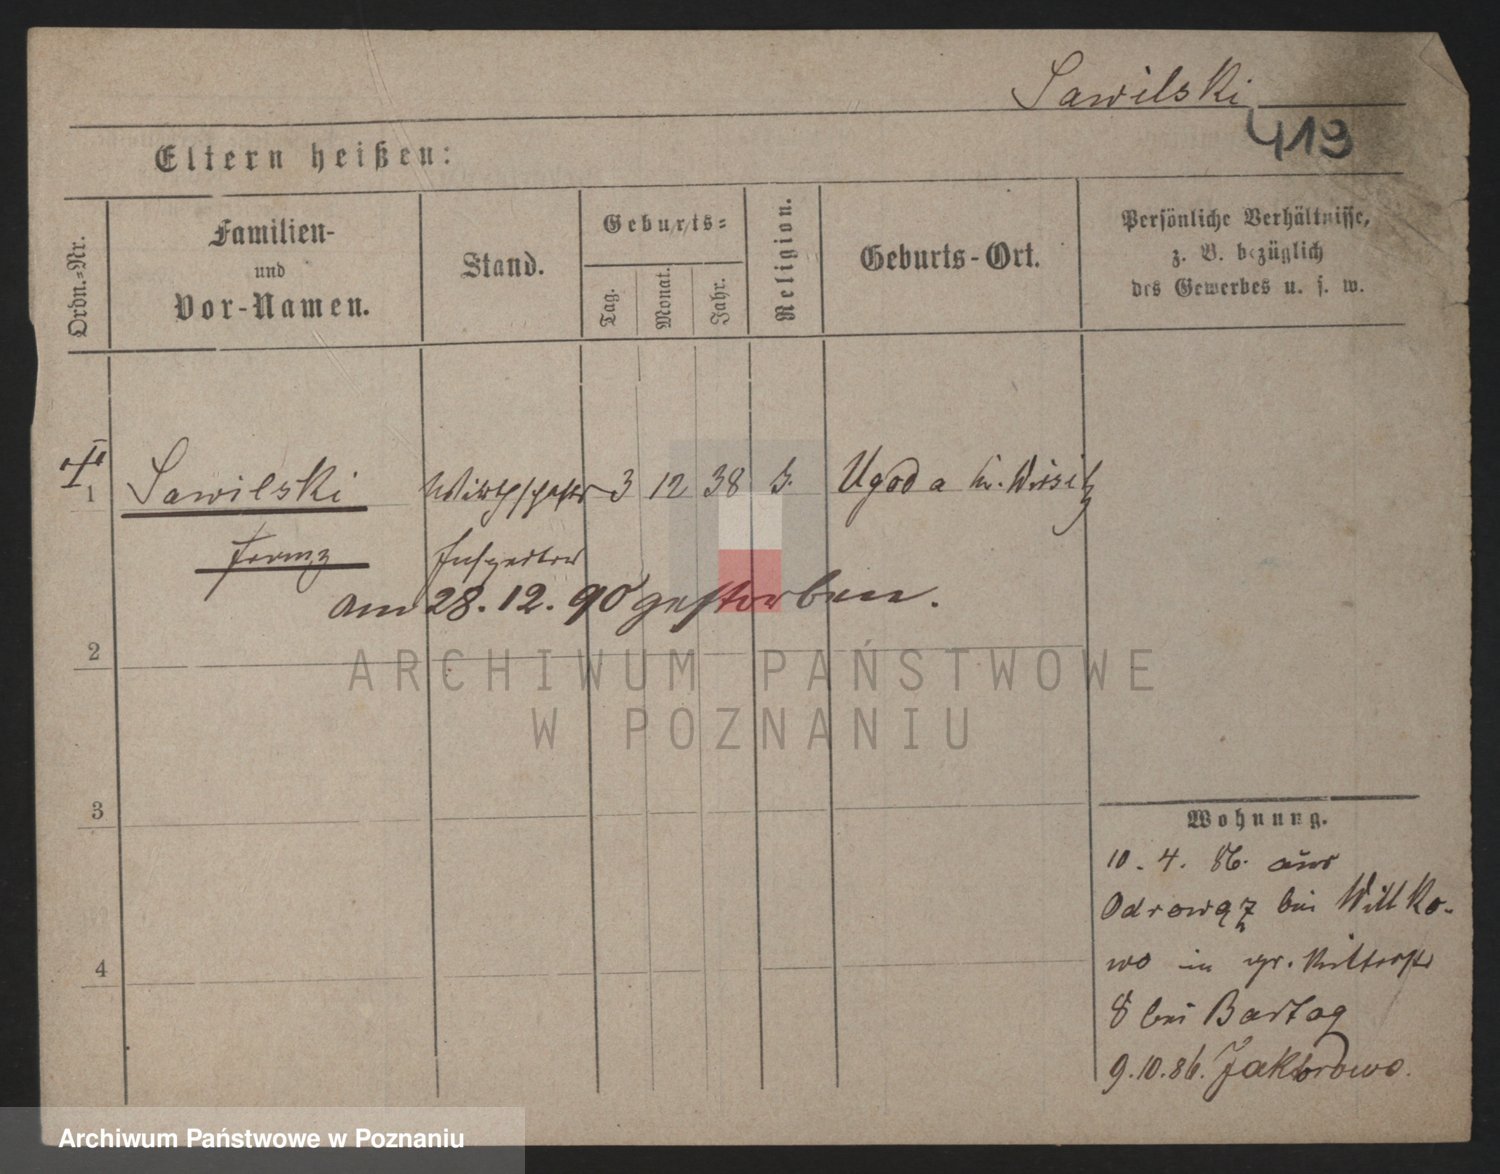 Sawilski
419
Eltern heißen:
Ordn.-Nr.
Familien-
und
Vor-Namen.
Stand.
Geburts-
Tag.
Monat.
Jahr.
Religion.
Geburts-Ort.
Persönliche Verhältnisse,
z. B. bezüglich
des Gewerbes u. s. w.
1 Sawilski Wirthschafts 3 12 38 Ugoda Kr. Wirsitz
Franz Inspector
am 28.12.90 gestorben.
2
3
4
Wohnung.
10. 4. 86. aus
Odrowąz bei Witko-
wo in gr. Ritterstr
8 bei Bartag
9.10.86. Jaktorowo.
ARCHIWUM PAŃSTWOWE
W POZNANIU
Archiwum Państwowe w Poznaniu